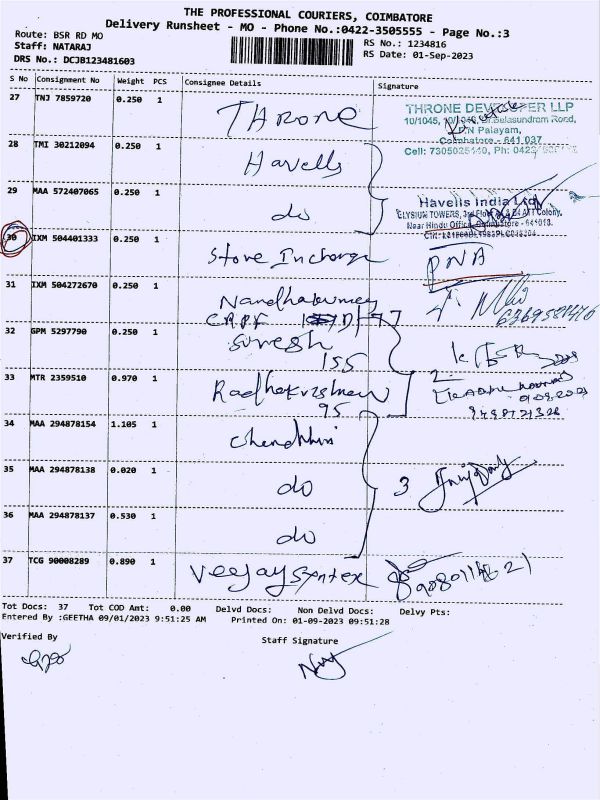 THE PROFESSIONAL COURIERS, COIMBATORE
Delivery Runsheet - MO - Phone No.:0422-3505555 - Page No.:3
Route: BSR RD MO
Staff: NATARAJ
DRS No.: DCJB123481603
RS No.: 1234816
RS Date: 01-Sep-2023
S No Consignment No Weight PCS Consignee Details Signature
27 TNJ 7859720 0.250 1 Throne
THRONE DEVELOPER LLP
10/1045, Balasundram Road,
Palayam,
Coimbatore - 641 037
28 TMI 30212094 0.250 1 Havells
29 MAA 572407065 0.250 1 do
Havells India Ltd
ELYSIUM TOWERS, 3rd Floor Colony,
Near Hindu Office, Coimbatore - 641018.
30 IXM 504401333 0.250 1 Store Incharge PNA
31 IXM 504272670 0.250 1 Nandhakumar
32 GPM 5297790 0.250 1 Suresh
155
33 MTR 2359510 0.970 1 Radhakrishnan
95
34 MAA 294878154 1.105 1
35 MAA 294878138 0.020 1 do 3
36 MAA 294878137 0.530 1 do
37 TCG 90008289 0.890 1 Veejay Syntex
Tot Docs: 37 Tot COD Amt: 0.00 Delvd Docs: Non Delvd Docs: Delvy Pts:
Entered By :GEETHA 09/01/2023 9:51:25 AM Printed On: 01-09-2023 09:51:28
Verified By Staff Signature